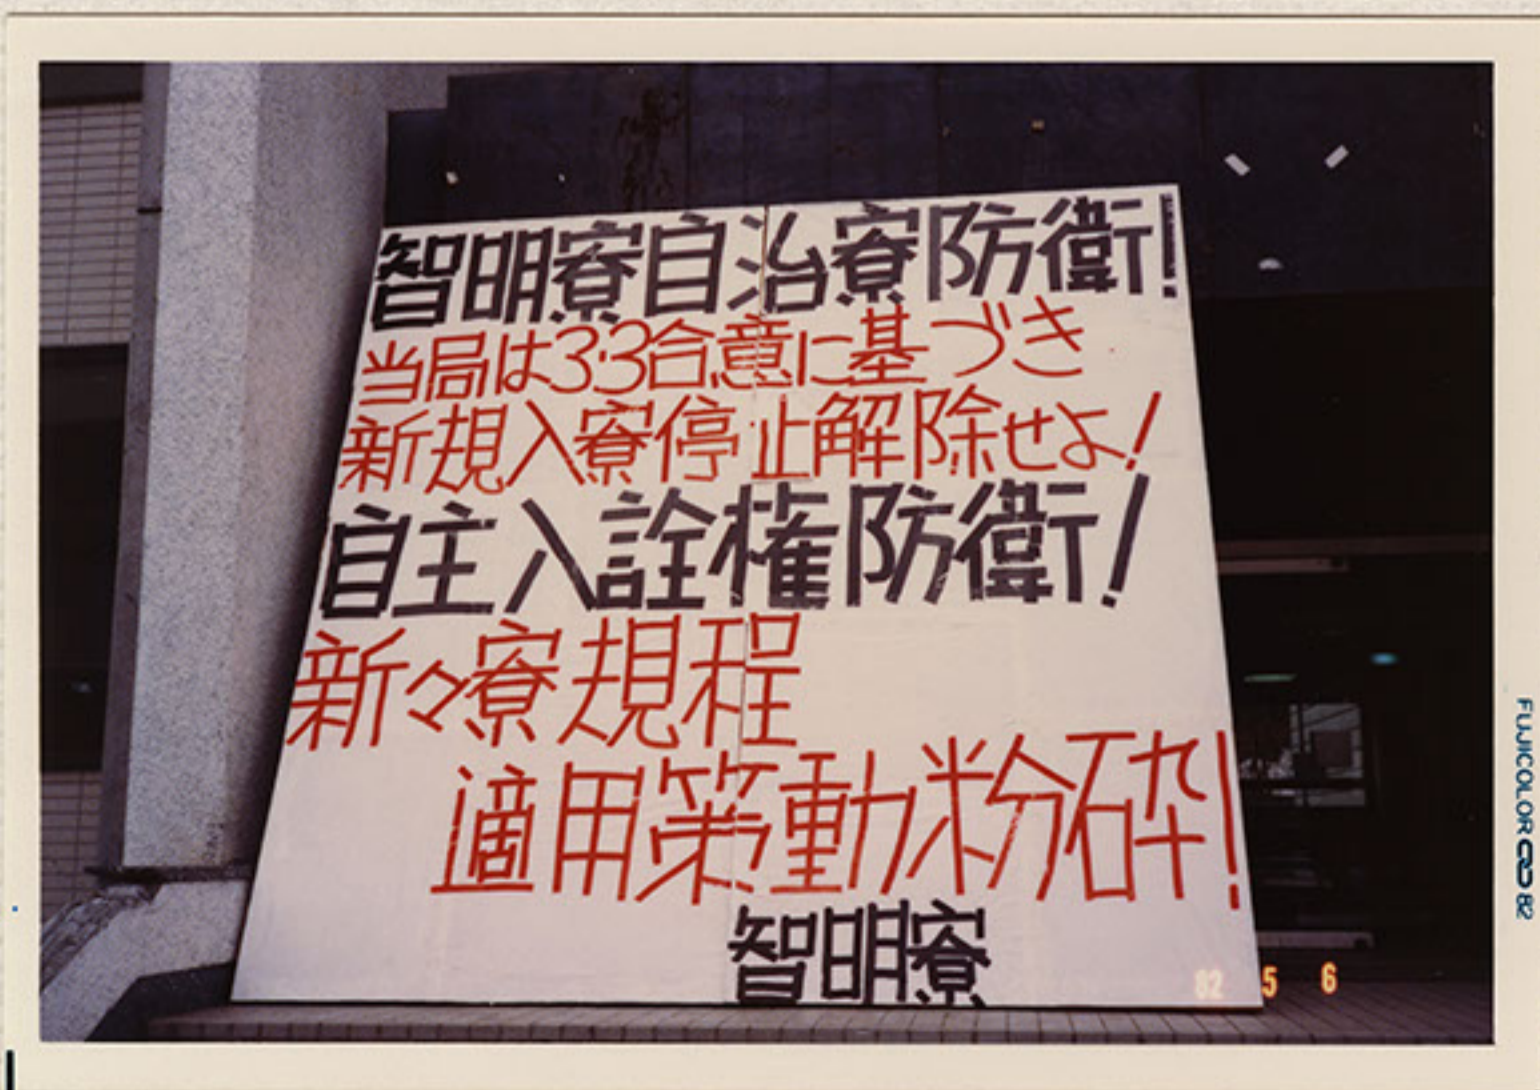 智明寮自治寮防衛!
当局は3・3合意に基づき
新規入寮停止解除せよ!
自主入詮権防衛!
新々寮規程
適用策動粉砕!
智明寮
82 5 6
FUJICOLOR 82